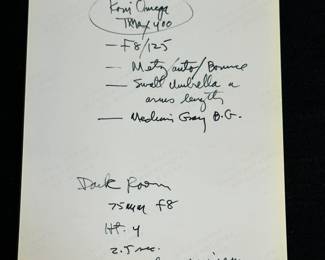 Koni Omega
TMax 400
— F8/125
— Metz/auto/Bounce
— Small Umbrella @
arms length
— Medium Gray B.G.
Dark Room
75mm F8
Ht. 4
2.5 sec.